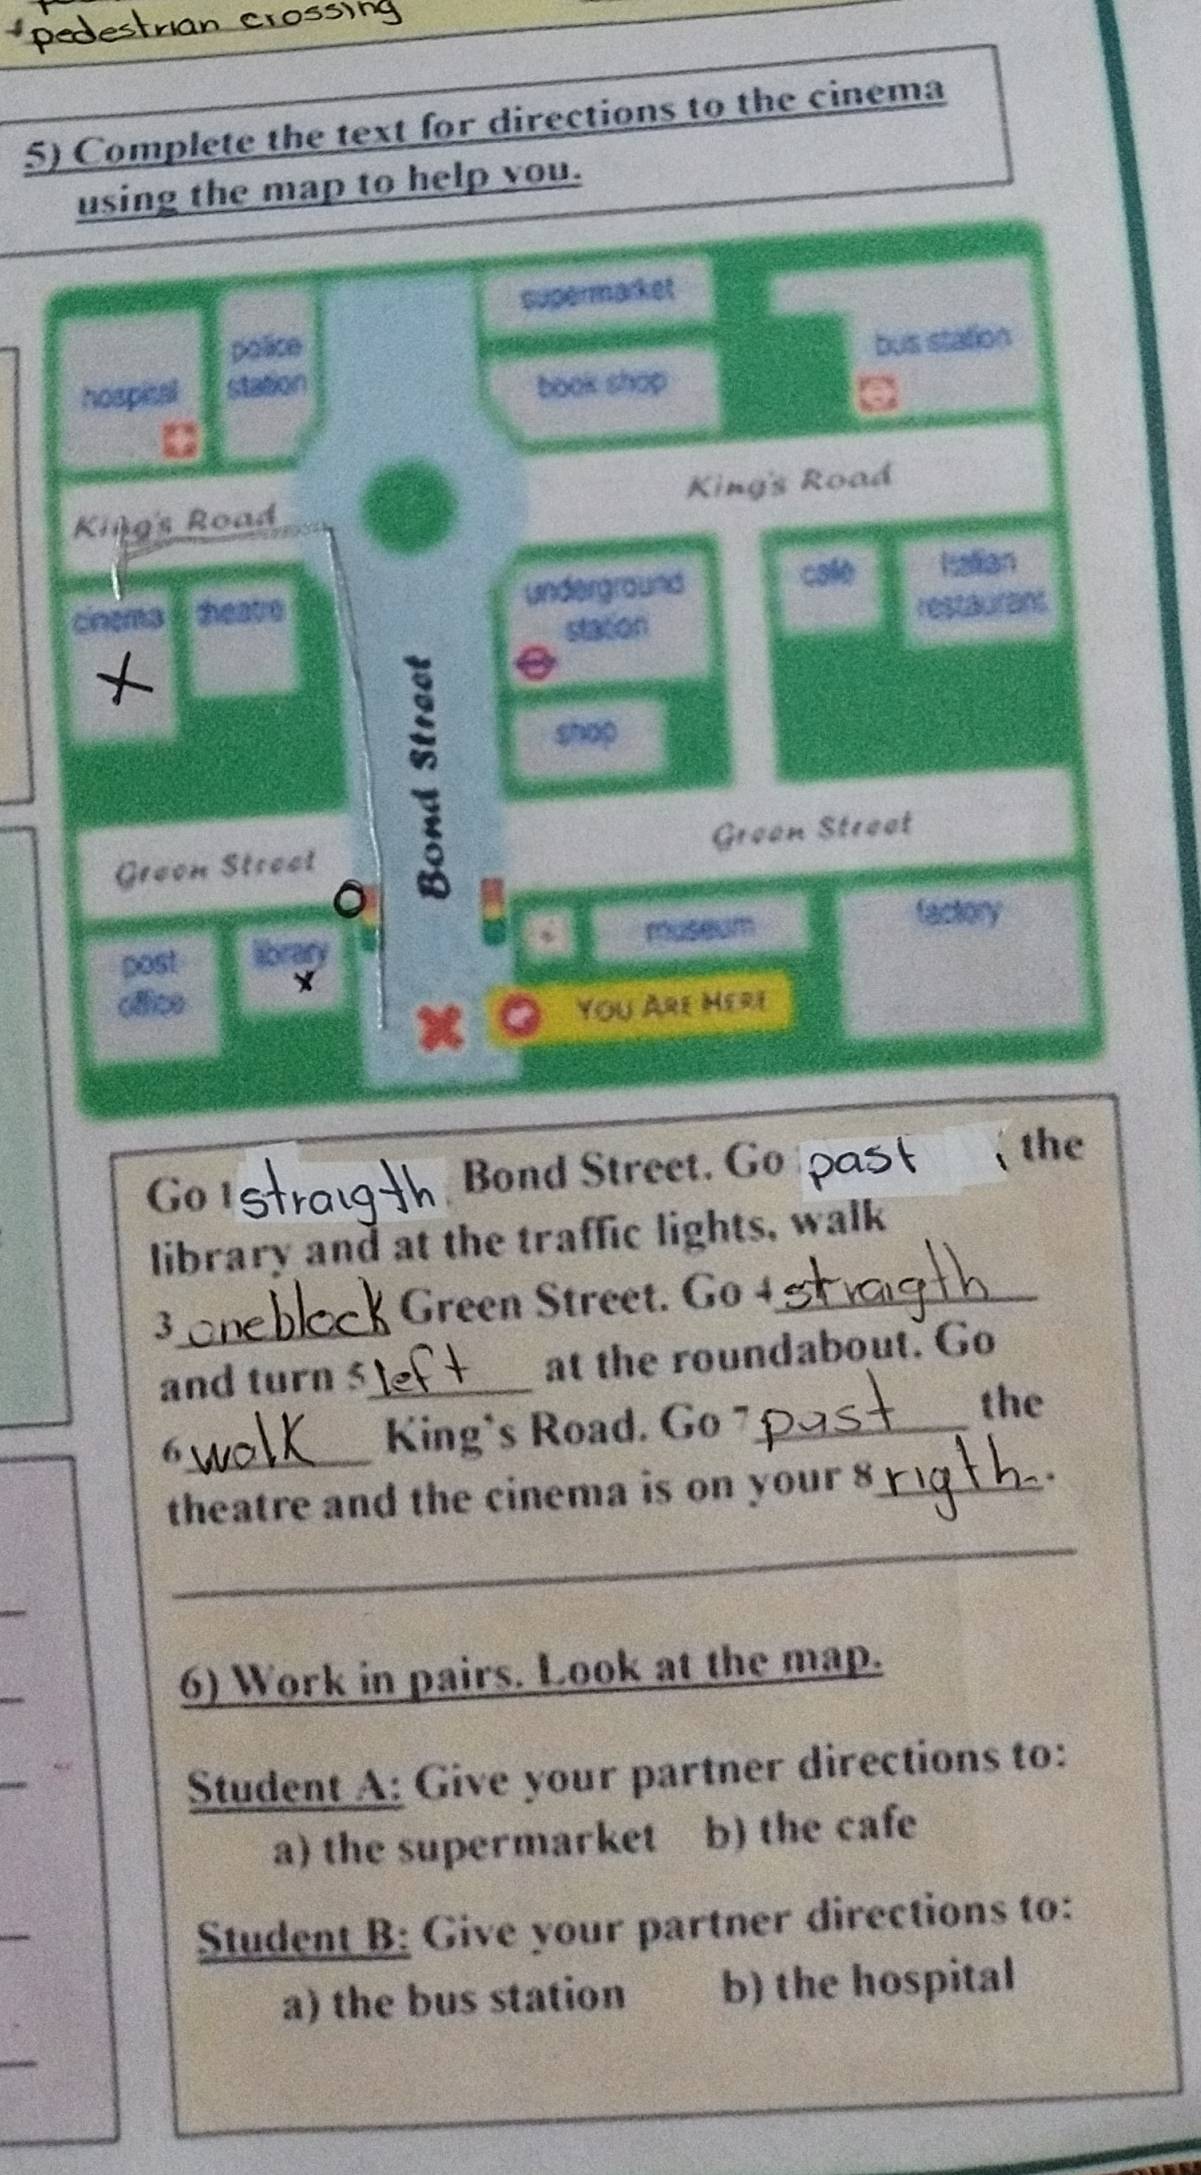 pedestrian crossing
5) Complete the text for directions to the cinema
using the map to help you.
supermarket
police
station
hospital
book shop
bus station
King's Road
King's Road
cinema
theatre
underground
station
cafe
Italian
restaurant
shop
Bond Street
Green Street
Green Street
post
office
library
museum
factory
YOU ARE HERE
Go 1 straigth Bond Street. Go past the
library and at the traffic lights, walk
3 one block Green Street. Go 4 straigth
and turn 5 left at the roundabout. Go
6 walk King's Road. Go 7 past the
theatre and the cinema is on your 8 rigth.
6) Work in pairs. Look at the map.
Student A: Give your partner directions to:
a) the supermarket b) the cafe
Student B: Give your partner directions to:
a) the bus station b) the hospital